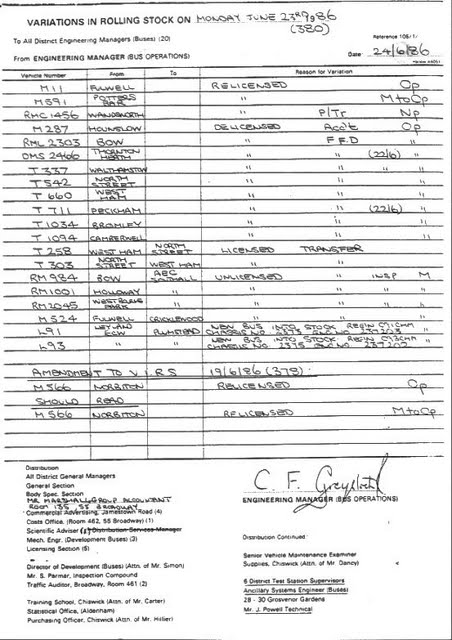 VARIATIONS IN ROLLING STOCK ON MONDAY JUNE 23RD 1986
(380)
To All District Engineering Managers (Buses) (20)
Reference 106/1/
From ENGINEERING MANAGER (BUS OPERATIONS)
Date 24/6/86
Vehicle Number From To Reason for Variation
M11 FULWELL RELICENSED Op
M591 POTTERS BAR " M to Op
RMC 1456 WANDSWORTH " P/Tr Np
M287 HOUNSLOW DELICENSED Acc't Op
RML 2303 BOW " F.F.D "
DMS 2466 THORNTON HEATH " " (22/6) "
T337 WALTHAMSTOW " " "
T542 NORTH STREET " " "
T660 WEST HAM " " "
T711 PECKHAM " " (22/6) "
T1034 BROMLEY " " "
T1094 CAMBERWELL " " "
T258 WEST HAM NORTH STREET LICENSED TRANSFER
T303 NORTH STREET WEST HAM " "
RM984 BOW AEC SOUTHALL UNLICENSED " INSP M
RM1001 HOLLOWAY " " " " "
RM2045 WESTBOURNE PARK " " " " "
M524 FULWELL CRICKLEWOOD " " "
L91 LEYLAND ECW PLUMSTEAD NEW BUS INTO STOCK REGN C91CHM "
CHASSIS No 2373 GLC No 237203
L93 " " NEW BUS INTO STOCK REGN C93CHM "
CHASSIS No 2375 GLC No 237202
AMENDMENT TO V.I.R.S 19/6/86 (378):
M566 NORBITON RELICENSED Op
SHOULD READ
M566 NORBITON RELICENSED M to Op
Distribution
All District General Managers
General Section
Body Spec. Section
MR MARSHALL GROUP ACCOUNTANT
ROOM 135, 55 BROADWAY
Commercial Advertising, Jamestown Road (4)
Costs Office, (Room 462, 55 Broadway) (1)
Scientific Adviser (1) Distribution Services Manager
Mech. Engr. (Development Buses) (3)
Licensing Section (5)
Director of Development (Buses) (Attn. of Mr. Simon)
Mr. S. Parmar, Inspection Compound
Traffic Auditor, Broadway, Room 461 (2)
Training School, Chiswick (Attn. of Mr. Carter)
Statistical Office, (Aldenham)
Purchasing Officer, Chiswick (Attn. of Mr. Hillier)
C. F.
ENGINEERING MANAGER (BUS OPERATIONS)
Distribution Continued
Senior Vehicle Maintenance Examiner
Supplies, Chiswick (Attn. of Mr Dancy)
6 District Test Station Supervisors
Ancillary Systems Engineer (Buses)
28 - 30 Grosvenor Gardens
Mr. J. Powell Technical